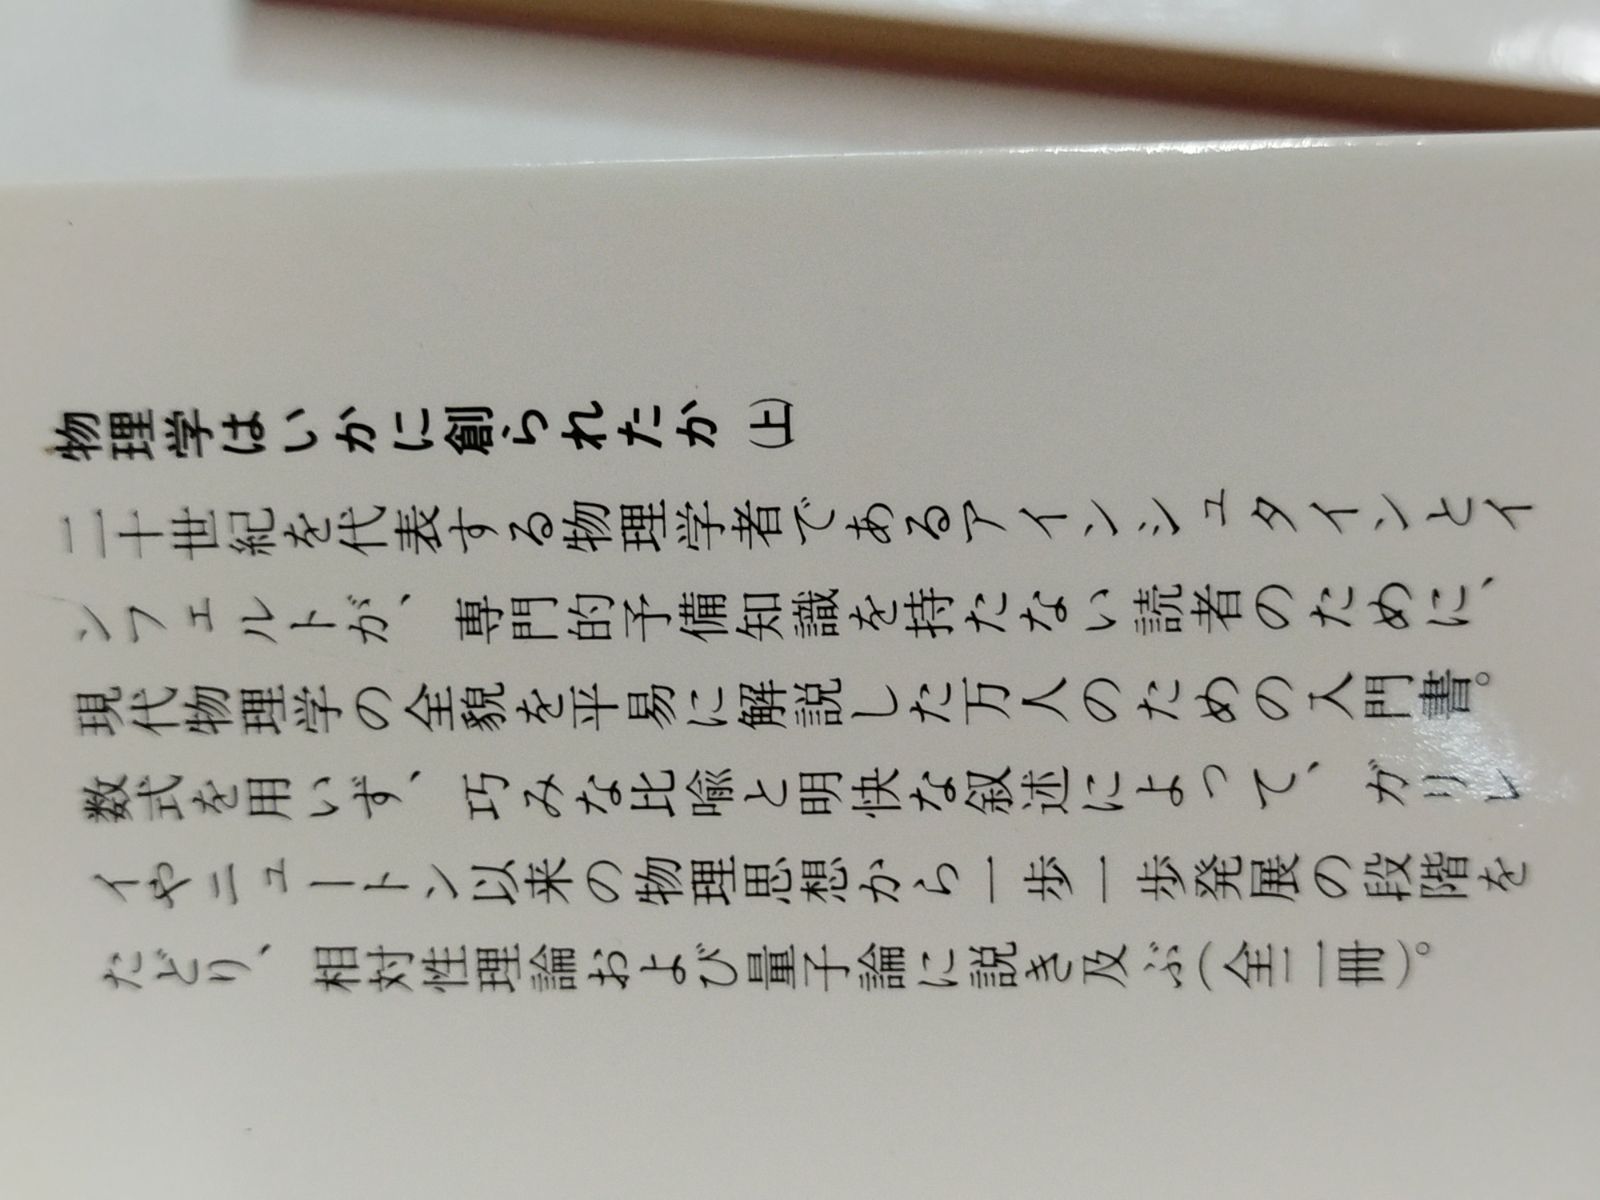 物理学はいかに創られたか(上)
二十世紀を代表する物理学者であるアインシュタインとイ
ンフェルトが、専門的予備知識を持たない読者のために、
現代物理学の全貌を平易に解説した万人のための入門書。
数式を用いず、巧みな比喩と明快な叙述によって、ガリレ
イやニュートン以来の物理思想から一歩一歩発展の段階を
たどり、相対性理論および量子論に説き及ぶ(全二冊)。